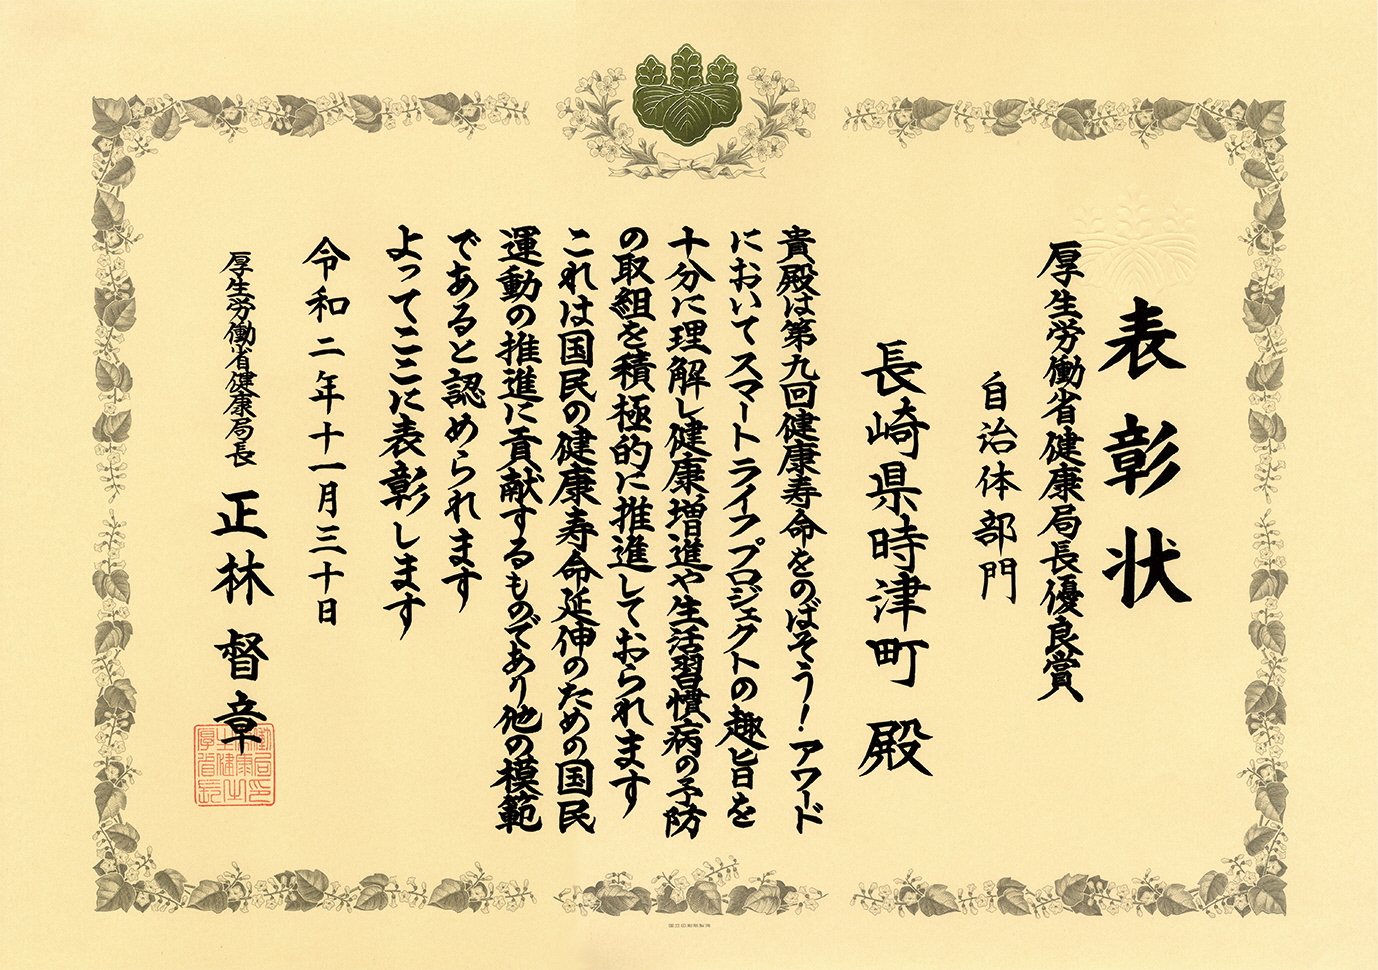 表彰状
厚生労働省健康局長優良賞
自治体部門
長崎県時津町 殿
貴殿は第九回健康寿命をのばそう！アワード
においてスマートライフプロジェクトの趣旨を
十分に理解し健康増進や生活習慣病の予防
の取組を積極的に推進しておられます
これは国民の健康寿命延伸のための国民
運動の推進に貢献するものであり他の模範
であると認められます
よってここに表彰します
令和二年十一月三十日
厚生労働省健康局長 正林督章